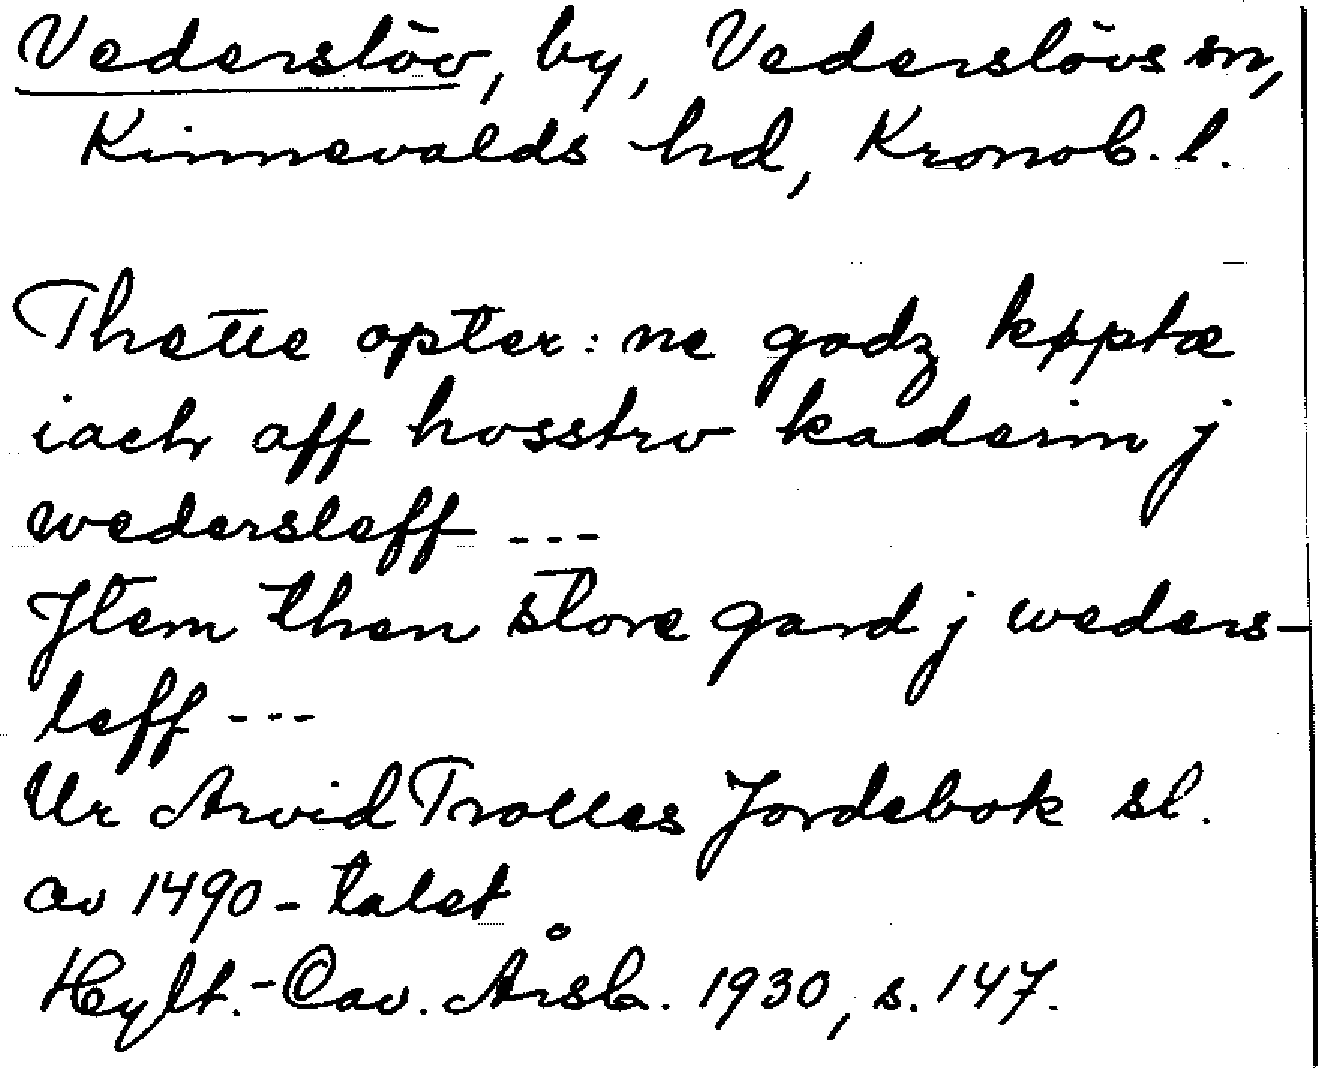 Vederslöv, by, Vederslövs sn,
Kinnevalds hd, Kronob. l.
Thette opter: ne godz køptæ
iach aff hosstro kaderin j
wedersleff ---
Jtem then store gard j weders-
leff ---
Ur Arvid Trolles Jordebok sl.
av 1490-talet
Hylt.-Cav. Årsb. 1930, s. 147.